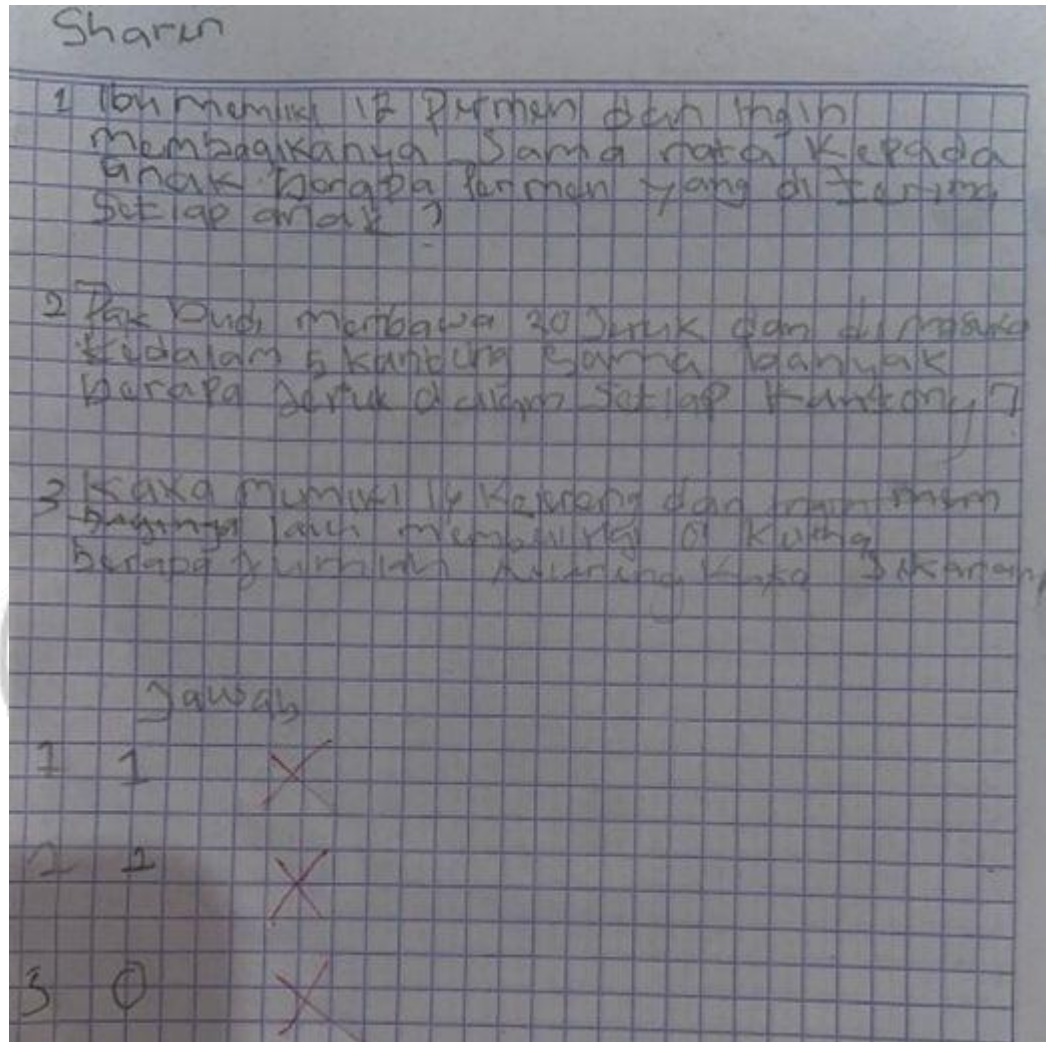 Sharen
1 Ibu memiliki 12 Permen dan ingin
membagikanya Sama rata Kepada
anak berapa Permen yang di terima
Setiap anak ?
2 Pak Budi membawa 20 Jeruk dan di masuka
kedalam 5 kantong Sama banyak
berapa Jeruk dalam Setiap kantong ?
3 Kaka memiliki 14 Kelereng dan ingin mem
lain
berapa jumlah kelereng kaka Sekarang
Jawab
1 1
2 2
3 0